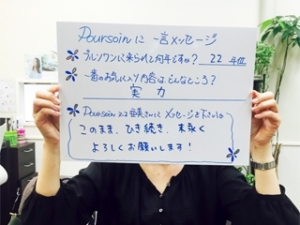 Poursoinに一言メッセージ
プルソワンに来られて何年ですか？ 22年位
一番のお気に入り内容は、どんなところ？
実力
Poursoin
メッセージを下さい
このまま、ひき続き、末永く
よろしくお願いします！